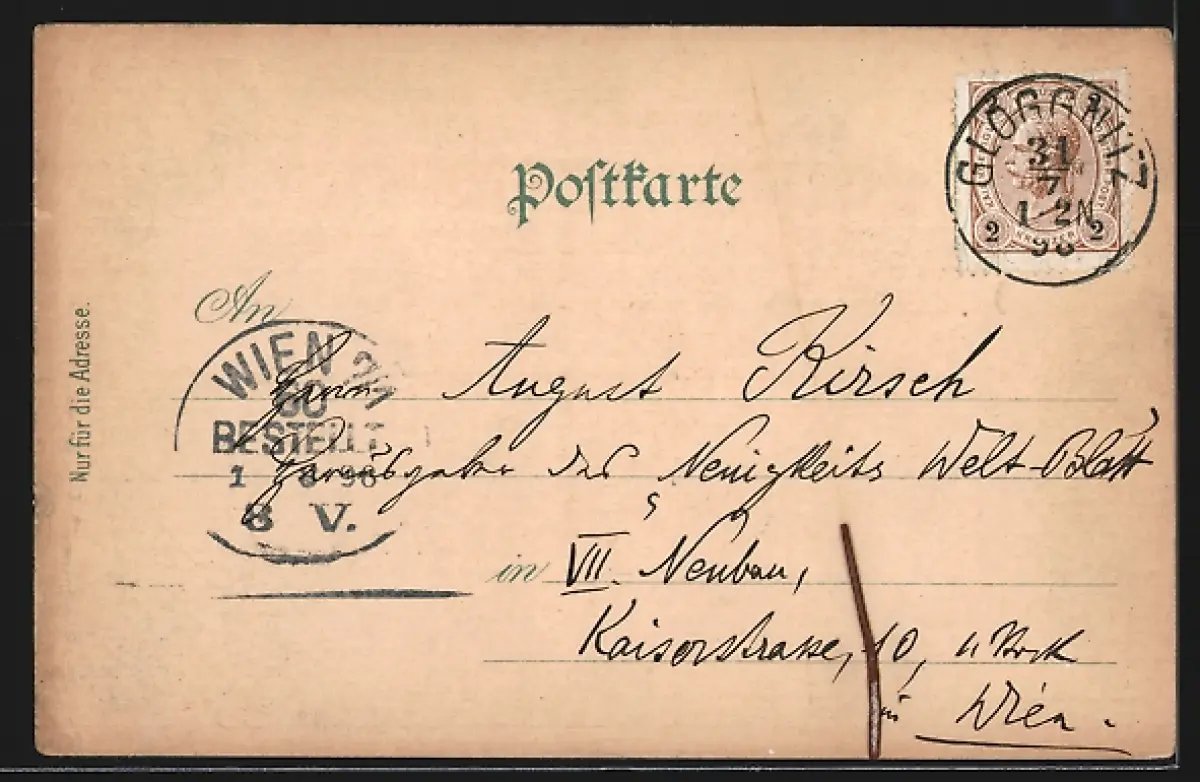 Postkarte
GLOGGNITZ
31
7
1-2N
98
2 KREUZER 2
Nur für die Adresse.
An
WIEN 7/1
BESTELLT
1 8 98
8 V.
Herrn August Kirsch
Herausgeber des Neuigkeits Welt-Blatt
in VII. Neubau,
Kaiserstrasse, 10,
in Wien.